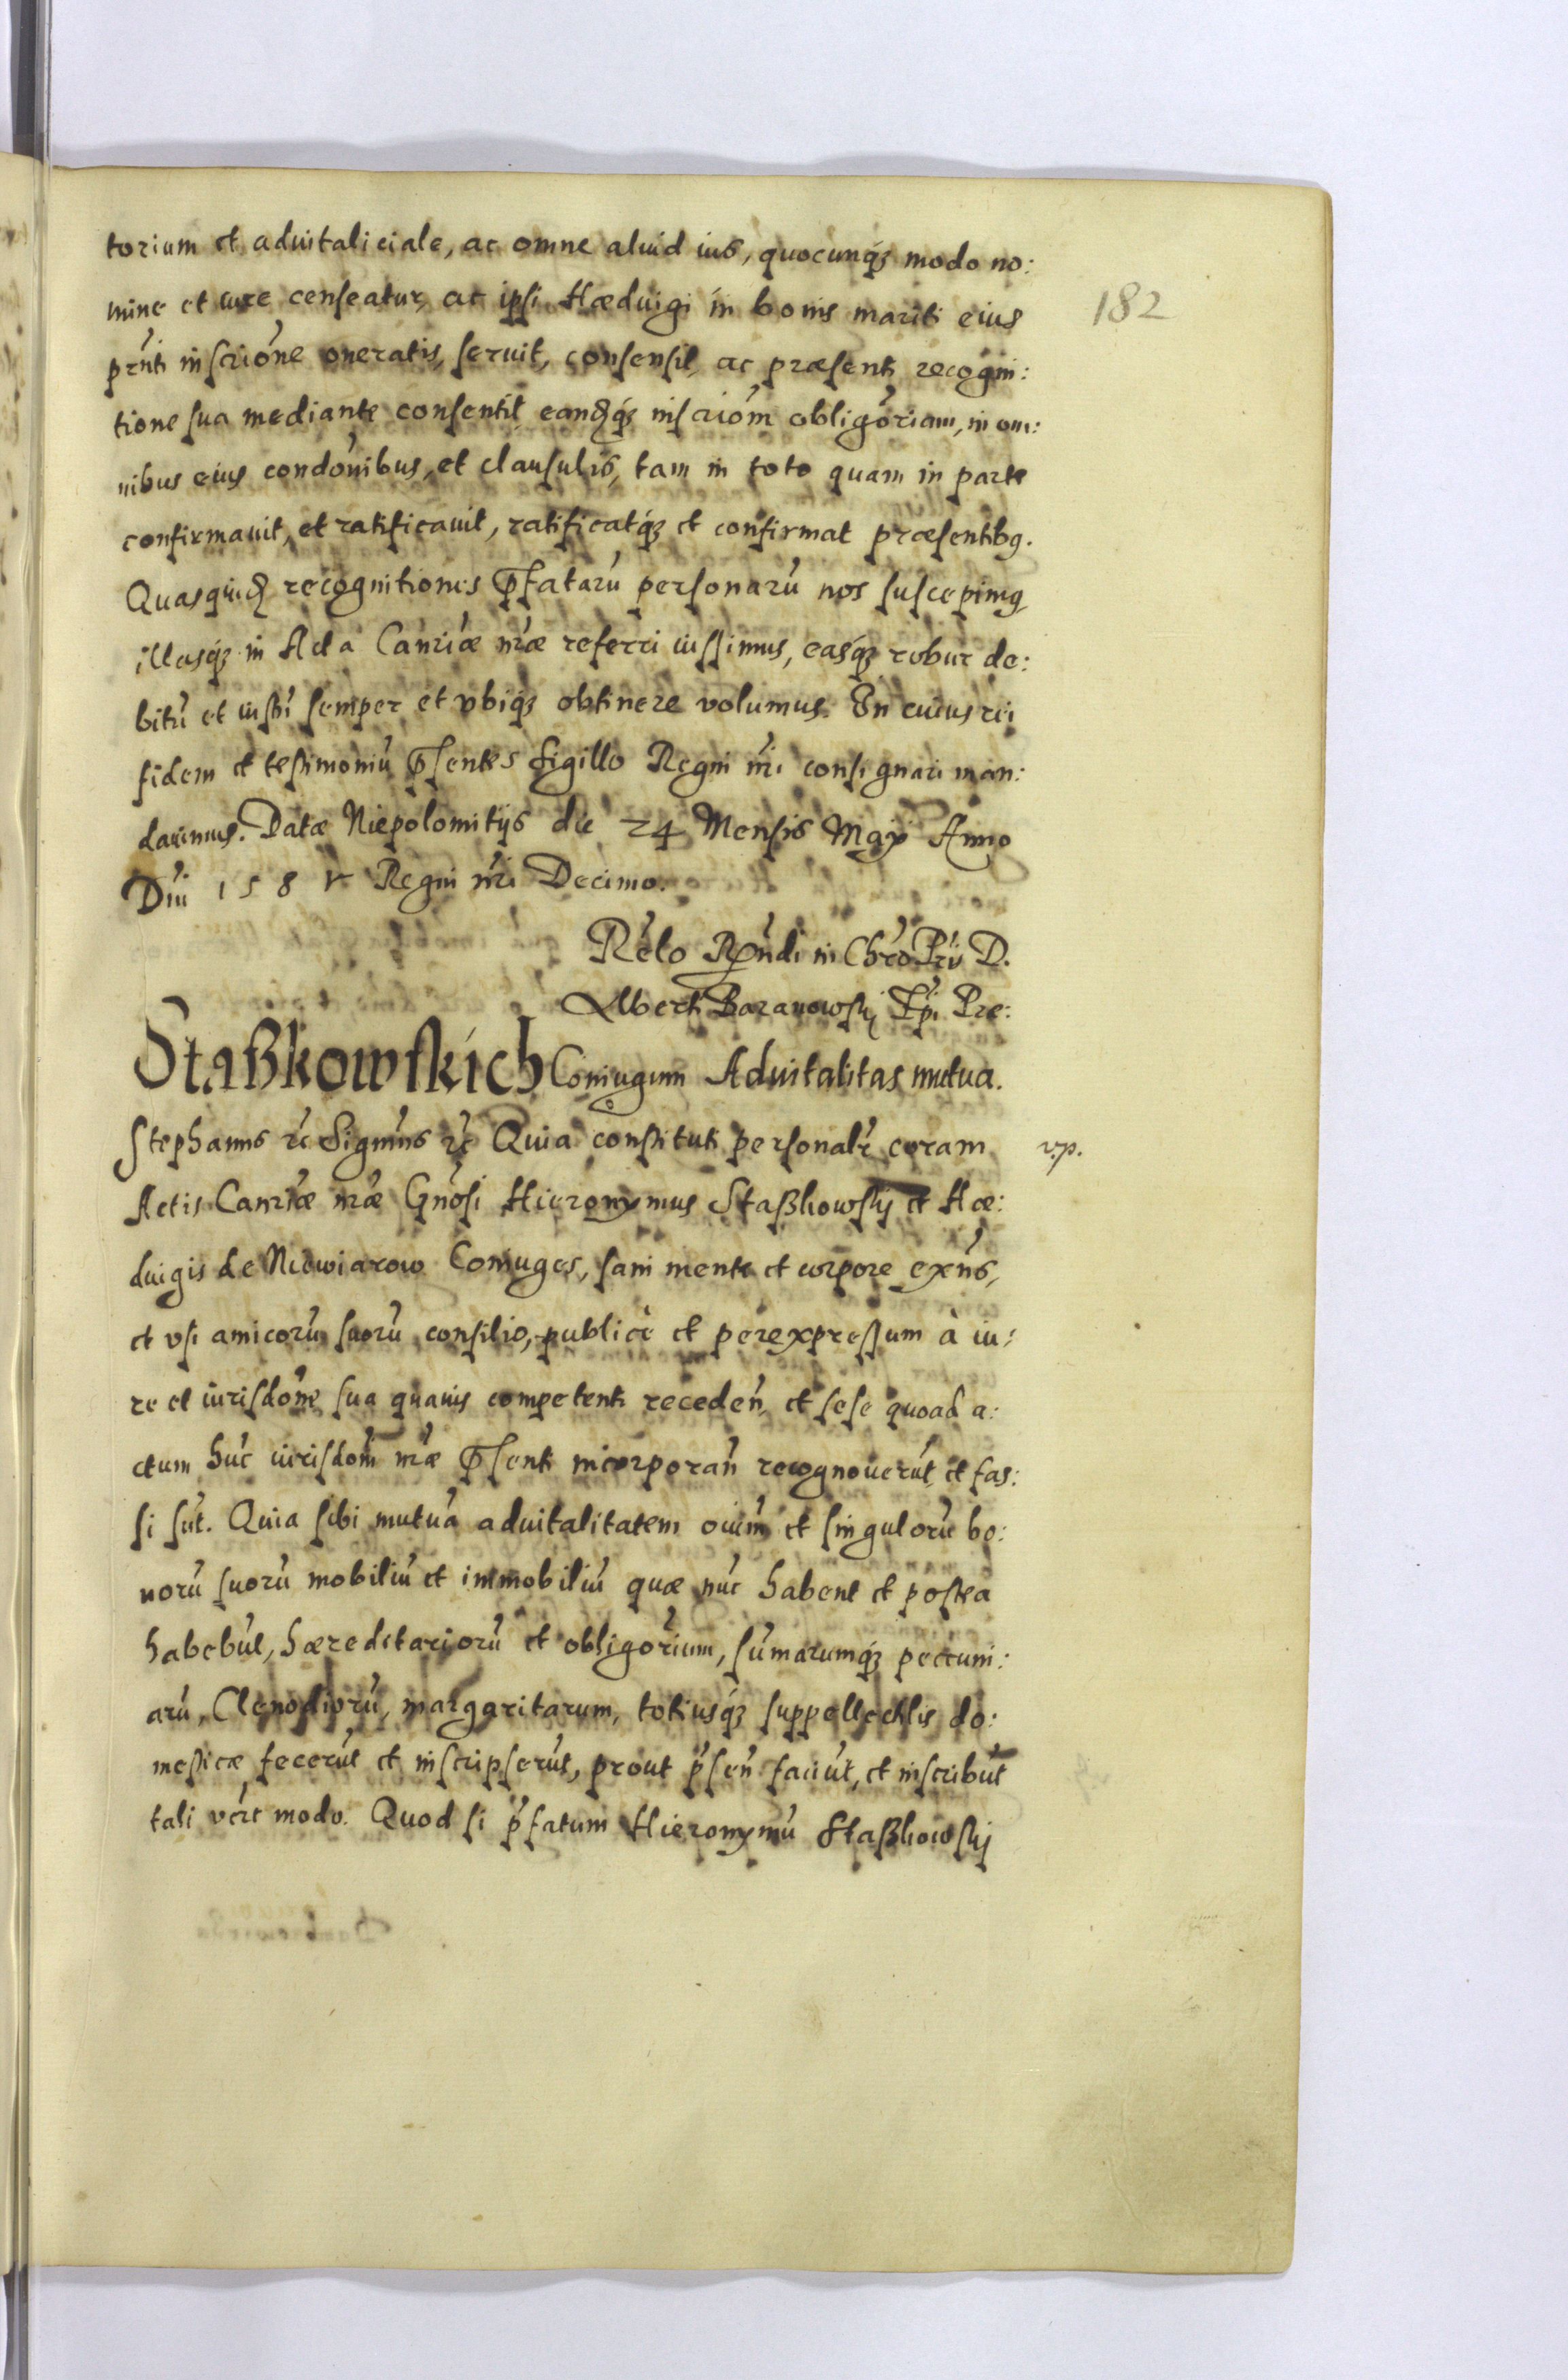 182
torium et aduitaliciale, ac omne aliud ius, quocunqꝫ modo no:
mine et iure censeatur, ac ipsi Hæduigi in bonis mariti eius
prn̄ti inscriōne oneratis, seruit, consensit, ac præsenti recogni:
tione sua mediante consentit, eandqꝫ inscriōm obligōriam, in om:
nibus eius condōnibus, et clausulis, tam in toto quam in parte
confirmauit, et ratificauit, ratificatqꝫ et confirmat præsentibꝯ.
Quasquid recognitiones p̄fatarū personarū nos suscepimꝯ,
illasqꝫ in Acta Canr̄iæ nr̄æ referri iussimus, easqꝫ robur de:
bitū et iustū semper et vbiqꝫ obtinere volumus. In cuius rei
fidem et testimoniū p̄sentes Sigillo Regni nr̄i consignari man:
dauimus. Datæ Niepolomitijs die 24 Mensis Maij Anno
Dn̄i 158 Regni nr̄i Decimo.
Rēlo Rn̄di in Chrō Pr̄is D.
Alberti Baranowskj Pp̄i Pre:
Staßkowskich Coniugum Aduitalitas mutua.
Stephanus ꝛc Signm̄s ꝛc Quia constituti personalr̄ coram
v.p.
Actis Canr̄iæ nr̄æ Gn̄osi Hieronymus Staßkowskj et Hæ:
duigis de Niewiarow Coniuges, sani mente et corpore exn̄s,
et vsi amicorū suorū consilio, publicè et per expressum à iu:
re et iurisdōne sua quauis competenti recedeñ, et sese quoad a:
ctum hūc iurisdōni nr̄æ p̄senti incorporañ recognouerūt, et fas:
si sūt. Quia sibi mutuā aduitalitatem oīum et singulorū bo:
norū suorū mobiliū et immobiliū quæ nūc habent et postea
habebūt, hæreditariorū et obligōrium, sūmarumqꝫ pecuni:
arū, Clenodiorū, margaritarum, totiusqꝫ suppellectilis do:
mesticæ fecerūt et inscripserūt, prout p̄señ faciūt, et inscribūt
tali vērt modo. Quod si p̄fatum Hieronymū Staßkowskj